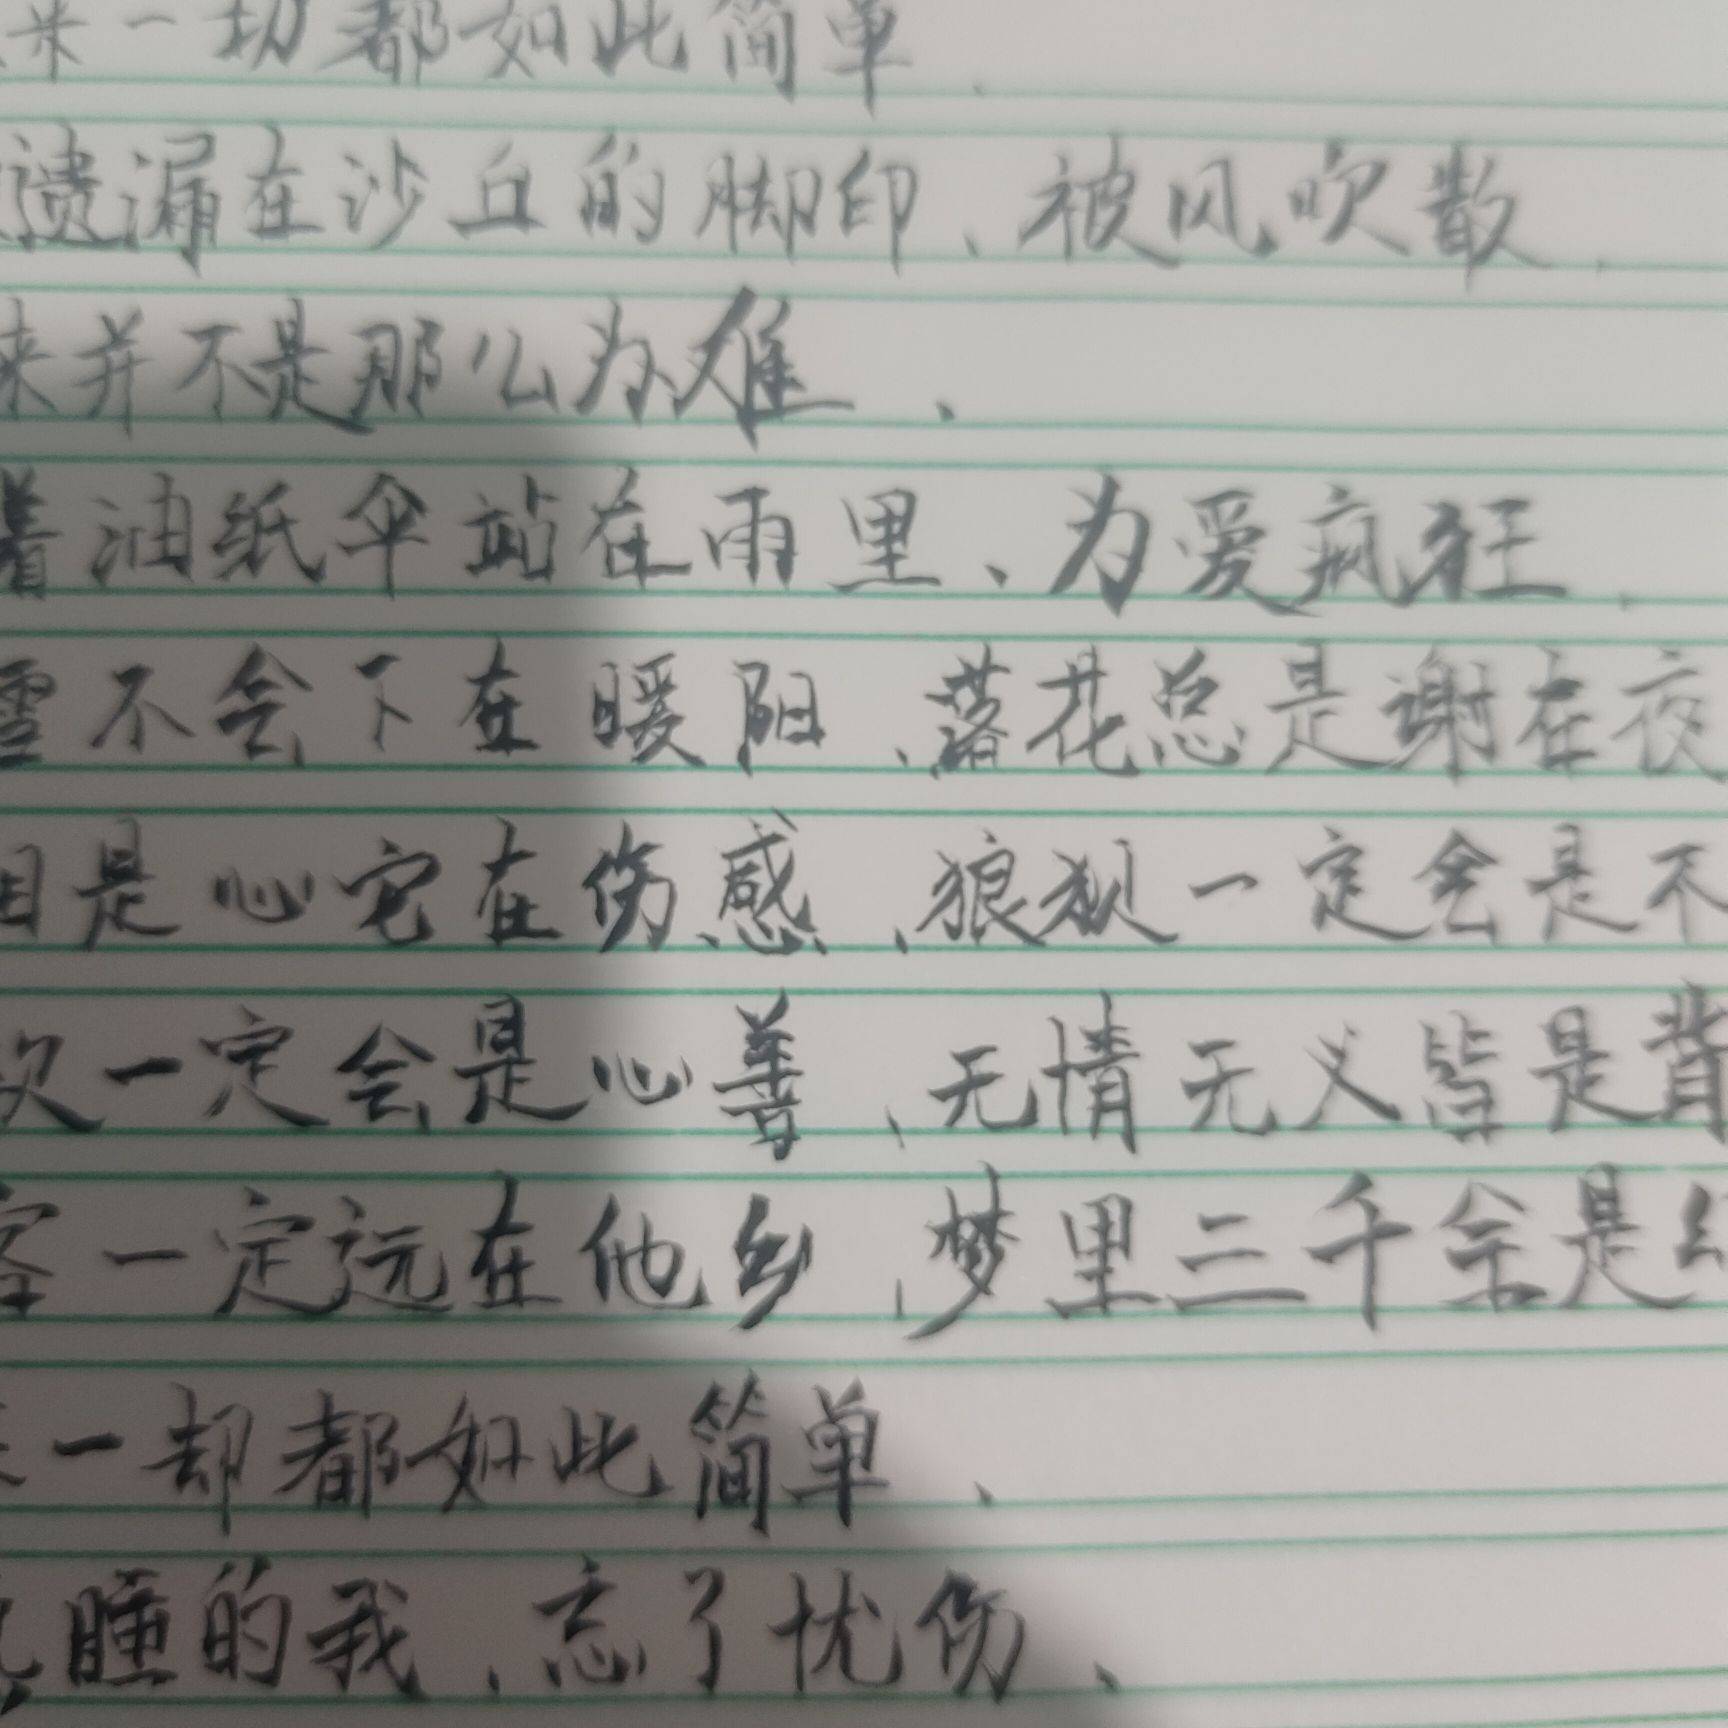 来一切都如此简单.
遗漏在沙丘的脚印、被风吹散.
来并不是那么为难、
着油纸伞站在雨里、为爱疯狂.
雪不会下在暖阳、落花总是谢在夜
是心它在伤感、狼狈一定会是不
次一定会是心善、无情无义皆是背
客一定远在他乡、梦里三千全是
一却都如此简单、
睡的我、忘了忧伤、